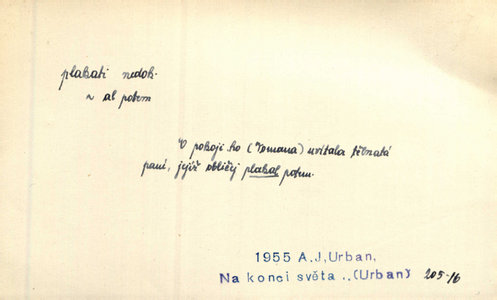 plakati nedok.
~ al potem
V pokoji ho (Tomana) uvítala tělnatá
paní, jejíž obličej plakal potem.
1955 A.J,Urban,
Na konci světa ..(Urban) 205-16